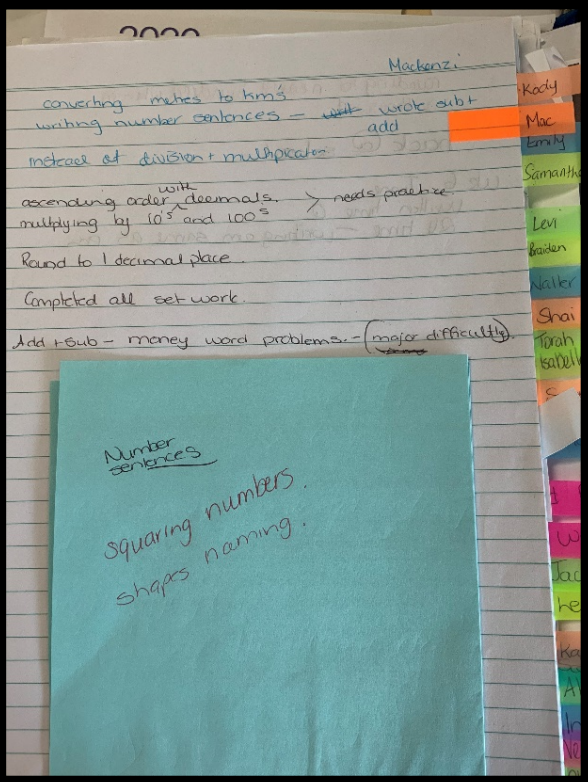 2020
Mackenzi
converting metres to km's
writing number sentences - wrote subt
add
instead of division + multiplication
ascending order with decimals. > needs practice
multplying by 10's and 100s
Round to 1 decimal place.
Completed all set work.
Add + sub - money word problems. - (major difficultly).
Number
sentences
squaring numbers.
shapes naming.
Kady
Mac
Emily
Samantha
Levi
Braiden
Waller
Shai
Torah
Isabell
S
W
Jac
he
Ka
Al